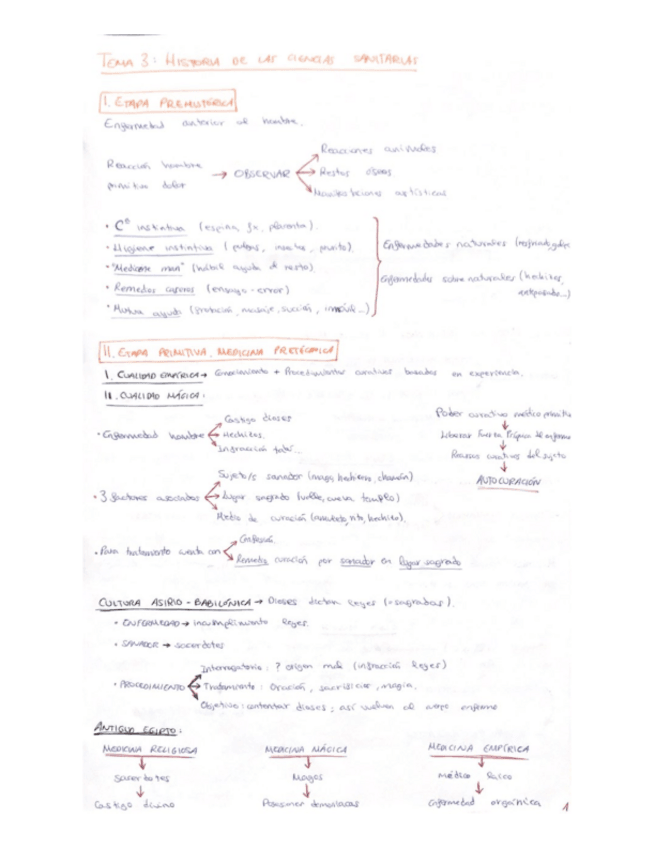 TEMA 3: HISTORIA DE LAS CIENCIAS SANITARIAS
I. ETAPA PREHISTÓRICA
Enfermedad anterior al hombre.
Reacción hombre primitivo dolor → OBSERVAR
Reacciones animales
Restos óseos
Manifestaciones artísticas
• Cº instintiva (espina, placenta).
• Higiene instintiva (insectos, prurito).
• "Medicine man" (hábil ayuda al resto)
• Remedios caseros (ensayo-error)
• Mutua ayuda (protección, masaje, succión, inmóvil...)
Enfermedades naturales
Enfermedades sobrenaturales (hechizos,
II. ETAPA PRIMITIVA. MEDICINA PRETÉCNICA
I. CUALIDAD EMPÍRICA → Conocimiento + Procedimientos curativos basados en experiencia.
II. CUALIDAD MÁGICA.
• Enfermedad hombre
Castigo dioses
Hechizos.
Infracción
• 3 factores asociados
Sujeto/s sanador (mago, hechicero, chamán)
Lugar sagrado (cueva, templo)
Medio de curación (amuleto, rito, hechizo).
Poder curativo médico
↓
Liberar Fuerza Propia del enfermo
↓
Recursos curativos del sujeto
↓
AUTOCURACIÓN
• Para tratamiento cuenta con
Confesión.
Remedio curación por sanador en lugar sagrado
CULTURA ASIRIO-BABILÓNICA → Dioses dictan leyes (=sagradas).
• ENFERMEDAD → incumplimiento leyes.
• SANADOR → sacerdotes
• PROCEDIMIENTO
Interrogatorio: ? origen mal (infracción leyes)
Tratamiento: Oración, sacrificios, magia.
Objetivo: contentar dioses; así vuelven al cuerpo enfermo
ANTIGUO EGIPTO:
MEDICINA RELIGIOSA MEDICINA MÁGICA MEDICINA EMPÍRICA
↓ ↓ ↓
Sacerdotes Magos médico laico
↓ ↓ ↓
Castigo divino Posesiones demoníacas enfermedad orgánica
1